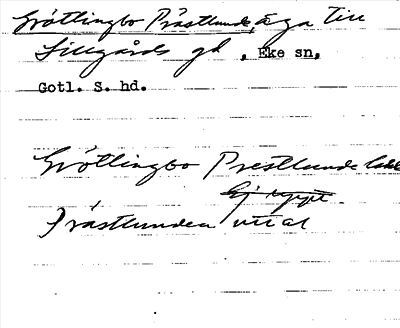 Grötlingbo Prästlunde, äga till
Lillgårds gd , Eke sn,
Gotl. S. hd.
Grötlingbo Prestlunde
Ej uppt.
Prästlunden